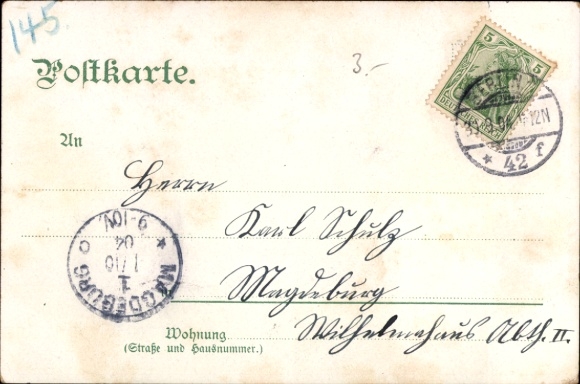 145.
3.-
Postkarte.
5 5
DEUTSCHES REICH
BERLIN
12N
* 42 f
An
Herrn
Karl Schulz
Magdeburg
Wohnung
(Straße und Hausnummer.)
Wilhelmahaus Abth. II.
MAGDEBURG
1
1/10
04
9-10V.